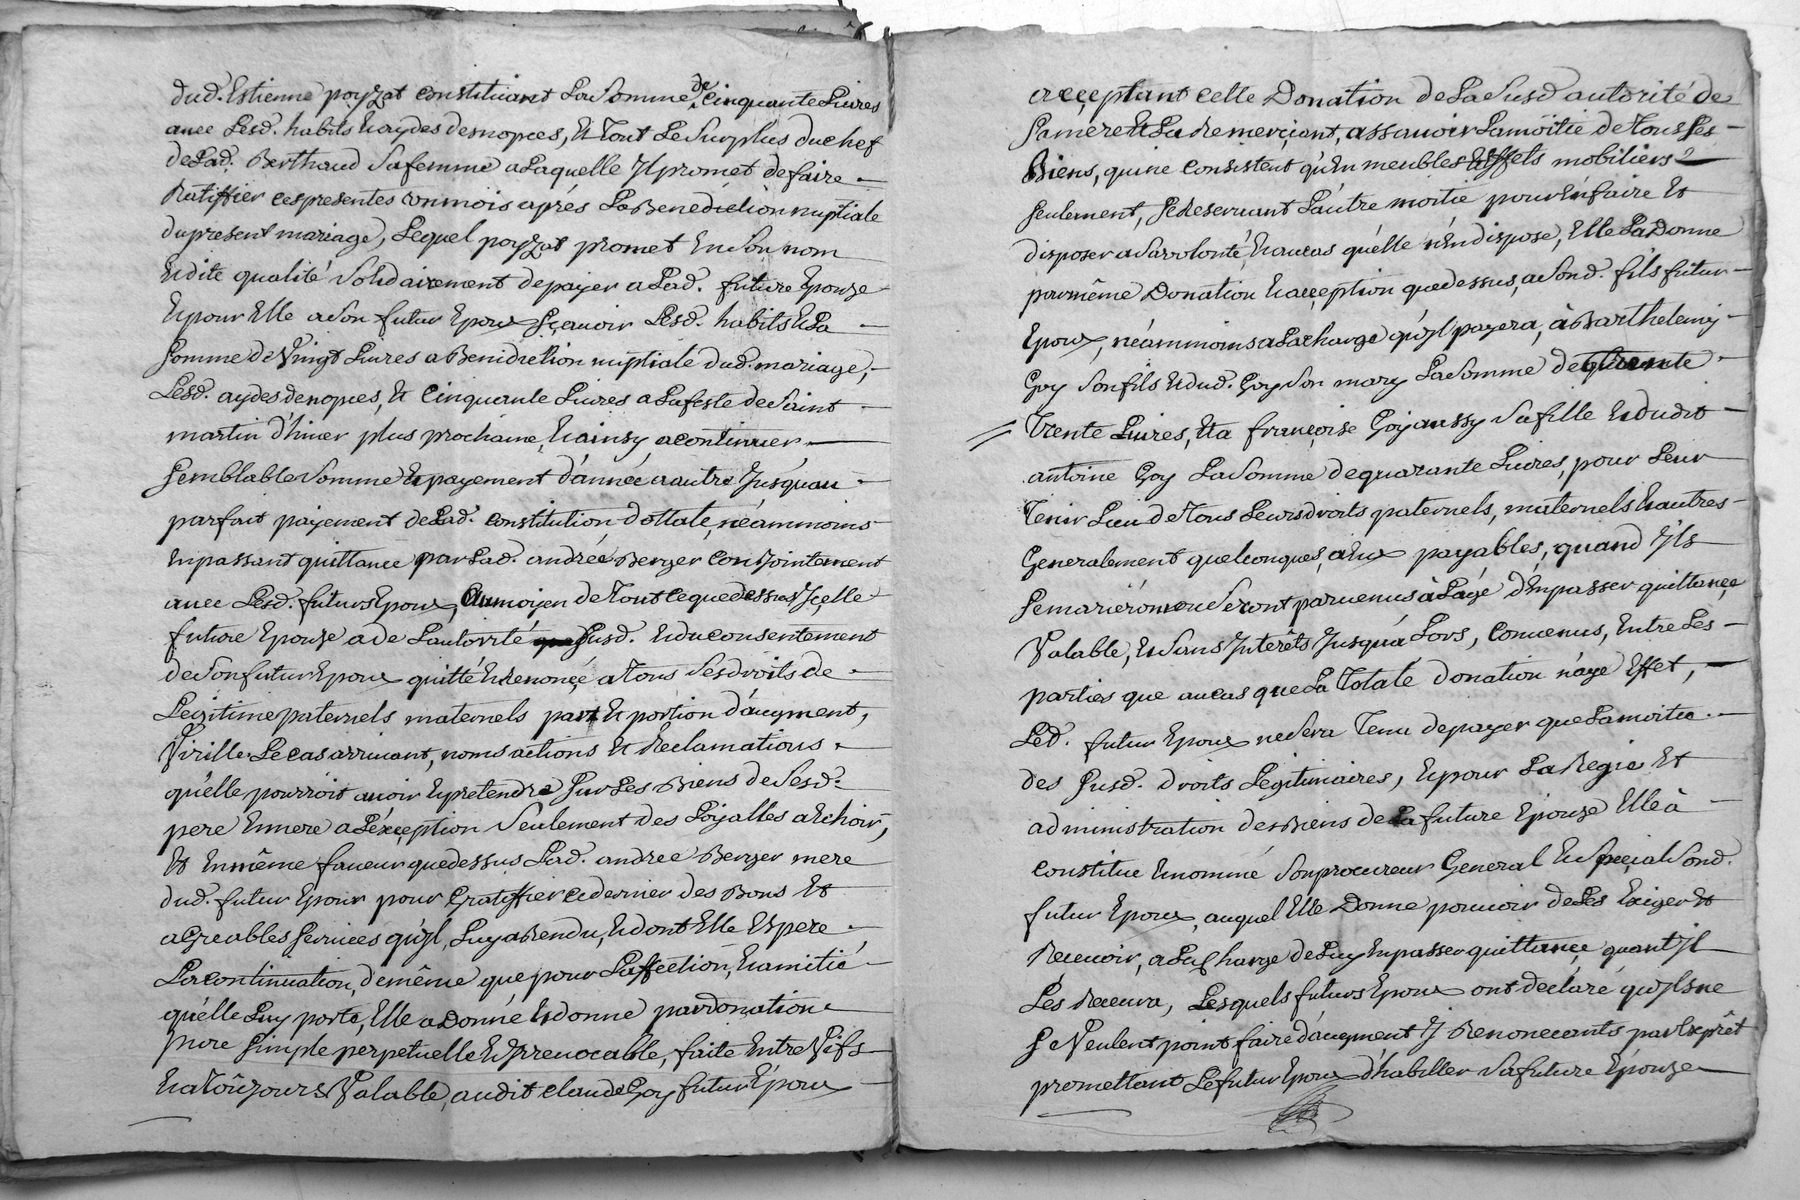 dud. Estienne poyzat constituant La Somme de Cinquante Livres
avec Lesd. habits Et aydes de nopces, Et Tout Le Surplus du chef
de Lad. Berthaud Sa femme a Laquelle Il promet de faire
Ratiffier ces presentes un mois aprés La Benédiction nuptiale
du present mariage, Lequel poyzat promet En Son nom
Et dite qualité Solidairement de payer a Lad. future Epouze
Et pour Elle a Son futur Epoux Sçavoir Lesd. habits Et La
Somme de Vingt Livres a Benidiction nuptiale dud. mariage,
Lesd. aydes de nopces, Et Cinquante Livres a La feste de Saint
martin d'hiver plus prochaine, Et ainsy a continuer
Semblable Somme Et payement d'année a autre Jusqu'au
parfait payement de Lad. Constitution dottale, néammoins
En passant quittance par Lad. andrée Berger Conjointement
avec Lesd. futurs Epoux, Au moyen de Tout ce que dessus Içelle
future Epouze a de L'autorité Susd. Et du consentement
de Son futur Epoux quitté Et Renonçé a Tous Ses droits de
Legitime paternels maternels part Et portion d'augment,
Virille Le cas arrivant, noms actions Et Reclamations
qu'elle pourroit avoir Et pretendre Sur Les Biens de Sesd.
pere Et mere a L'éxçeption Seulement des Loyalles a Echoir,
Et En même faveur que dessus Lad. andree Berger mere
dud. futur Epoux pour Gratiffier ce dernier des Bons Et
agreables Services qu'il Luy a Rendu, Et dont Elle Espere
La continuation, de même que pour L'affection, Et amitié
qu'elle Luy porte, Elle a Donné Et donne par donation
pure Simple perpetuelle Et Irrevocable, faite Entre Vifs
Et a Toûjours Valable, audit claude Goy futur Epoux
acçeptant cette Donation de La Susd autorité de
Sa mere Et La Remerçiant, assavoir La moitie de Tous Ses
Biens, qui ne Consistent qu'En meubles Et Effets mobiliers
Seulement, Se Reservant L'autre moitie pour En faire Et
disposer a Sa volonté, Et au cas qu'elle n'En dispose, Elle La Donne
par même Donation Et acçeption que dessus, a Sond. fils futur
Epoux, néammoins a La charge qu'il payera, à Barthelemy
Goy Son fils Et dud. Goy Son mary La Somme de
Trente Livres, Et a françoise Goy aussy Sa fille Et dudit
antoine Goy La Somme de quarante Livres, pour Leur
Tenir Lieu de Tous Leurs droits paternels, maternels Et autres
Generalement quelconques, a Eux payables, quand Ils
Se marieront ou Seront parvenus à L'âge d'En passer quittançe
Valable, Et Sans Interêts Jusqu'a Lors, Convenus, Entre Les
parties que au cas que La Totale donation n'aye Effet,
Led. futur Epoux ne Sera Tenu de payer que La moitie
des Susd. droits Legitimaires, Et pour La Regie Et
administration des Biens de La future Epouze Elle à
Constitue Et nommé Son procureur General Et Speçial Sond.
futur Epoux, auquel Elle Donne pouvoir de Les Exiger Et
Recevoir, a La charge de Luy En passer quittançe quant Il
Lés Recevra, Lesquels futurs Epoux ont déclaré qu'Ils ne
Se Veulent point faire d'augment Y Renonceants par Exprêt
promettant Le futur Epoux d'habiller Sa future Epouze